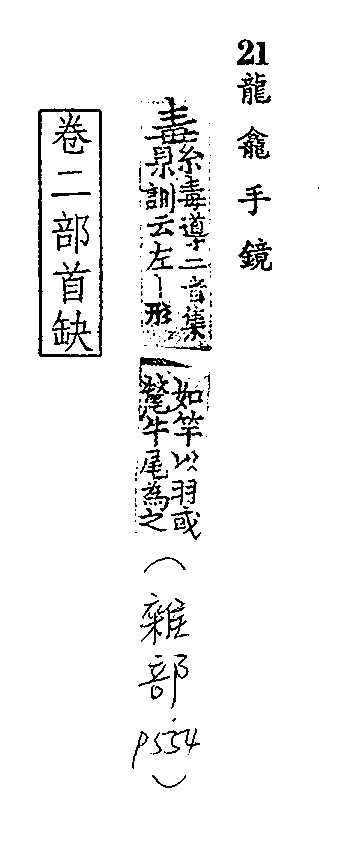 21 龍龕手鏡
纛 糸毒導二音集
泉訓云左丨形
如竿以羽或
氂牛尾為之
(雜部
p554)
卷二部首缺